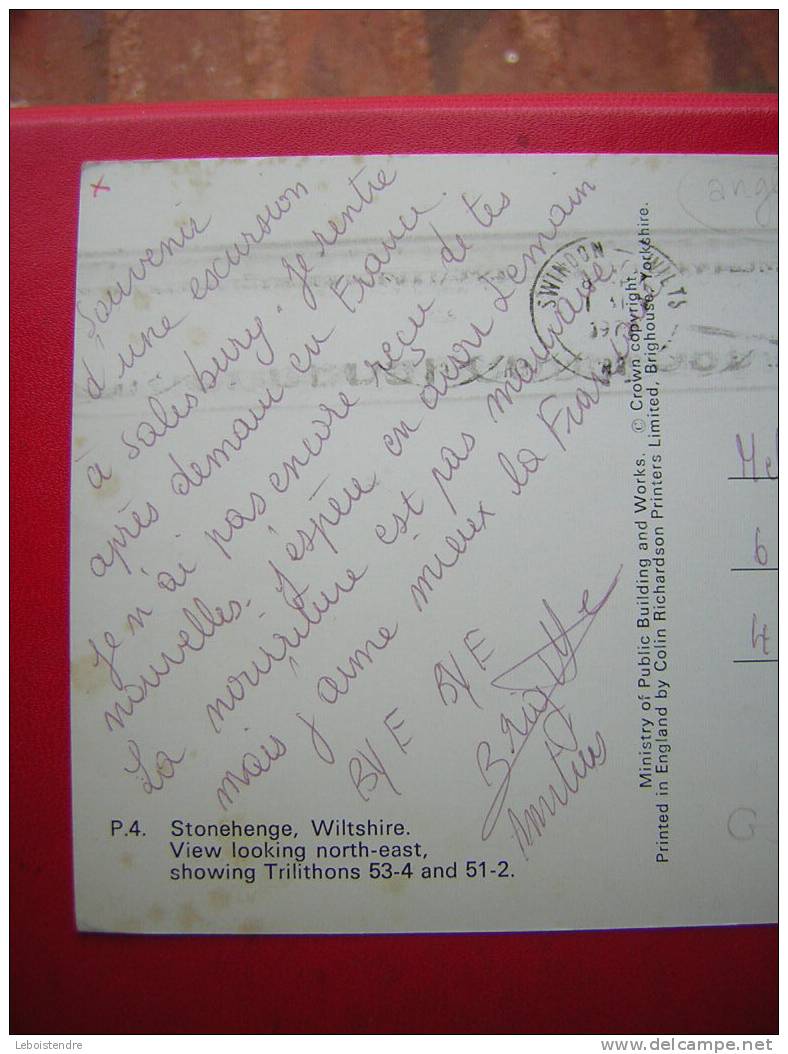 Souvenir
d'une excursion
à Salisbury. Je rentre
après demain en France.
Je n'ai pas encore reçu de tes
nouvelles. J'espère en avoir demain
La nourriture est pas mauvaise
mais j'aime mieux la France
BYE BYE
Brigitte
P.4. Stonehenge, Wiltshire.
View looking north-east,
showing Trilithons 53-4 and 51-2.
SWINDON WILTS
Ministry of Public Building and Works. © Crown copyright.
Printed in England by Colin Richardson Printers Limited, Brighouse, Yorkshire.
6
4
G
Leboistendre
delcampe.net